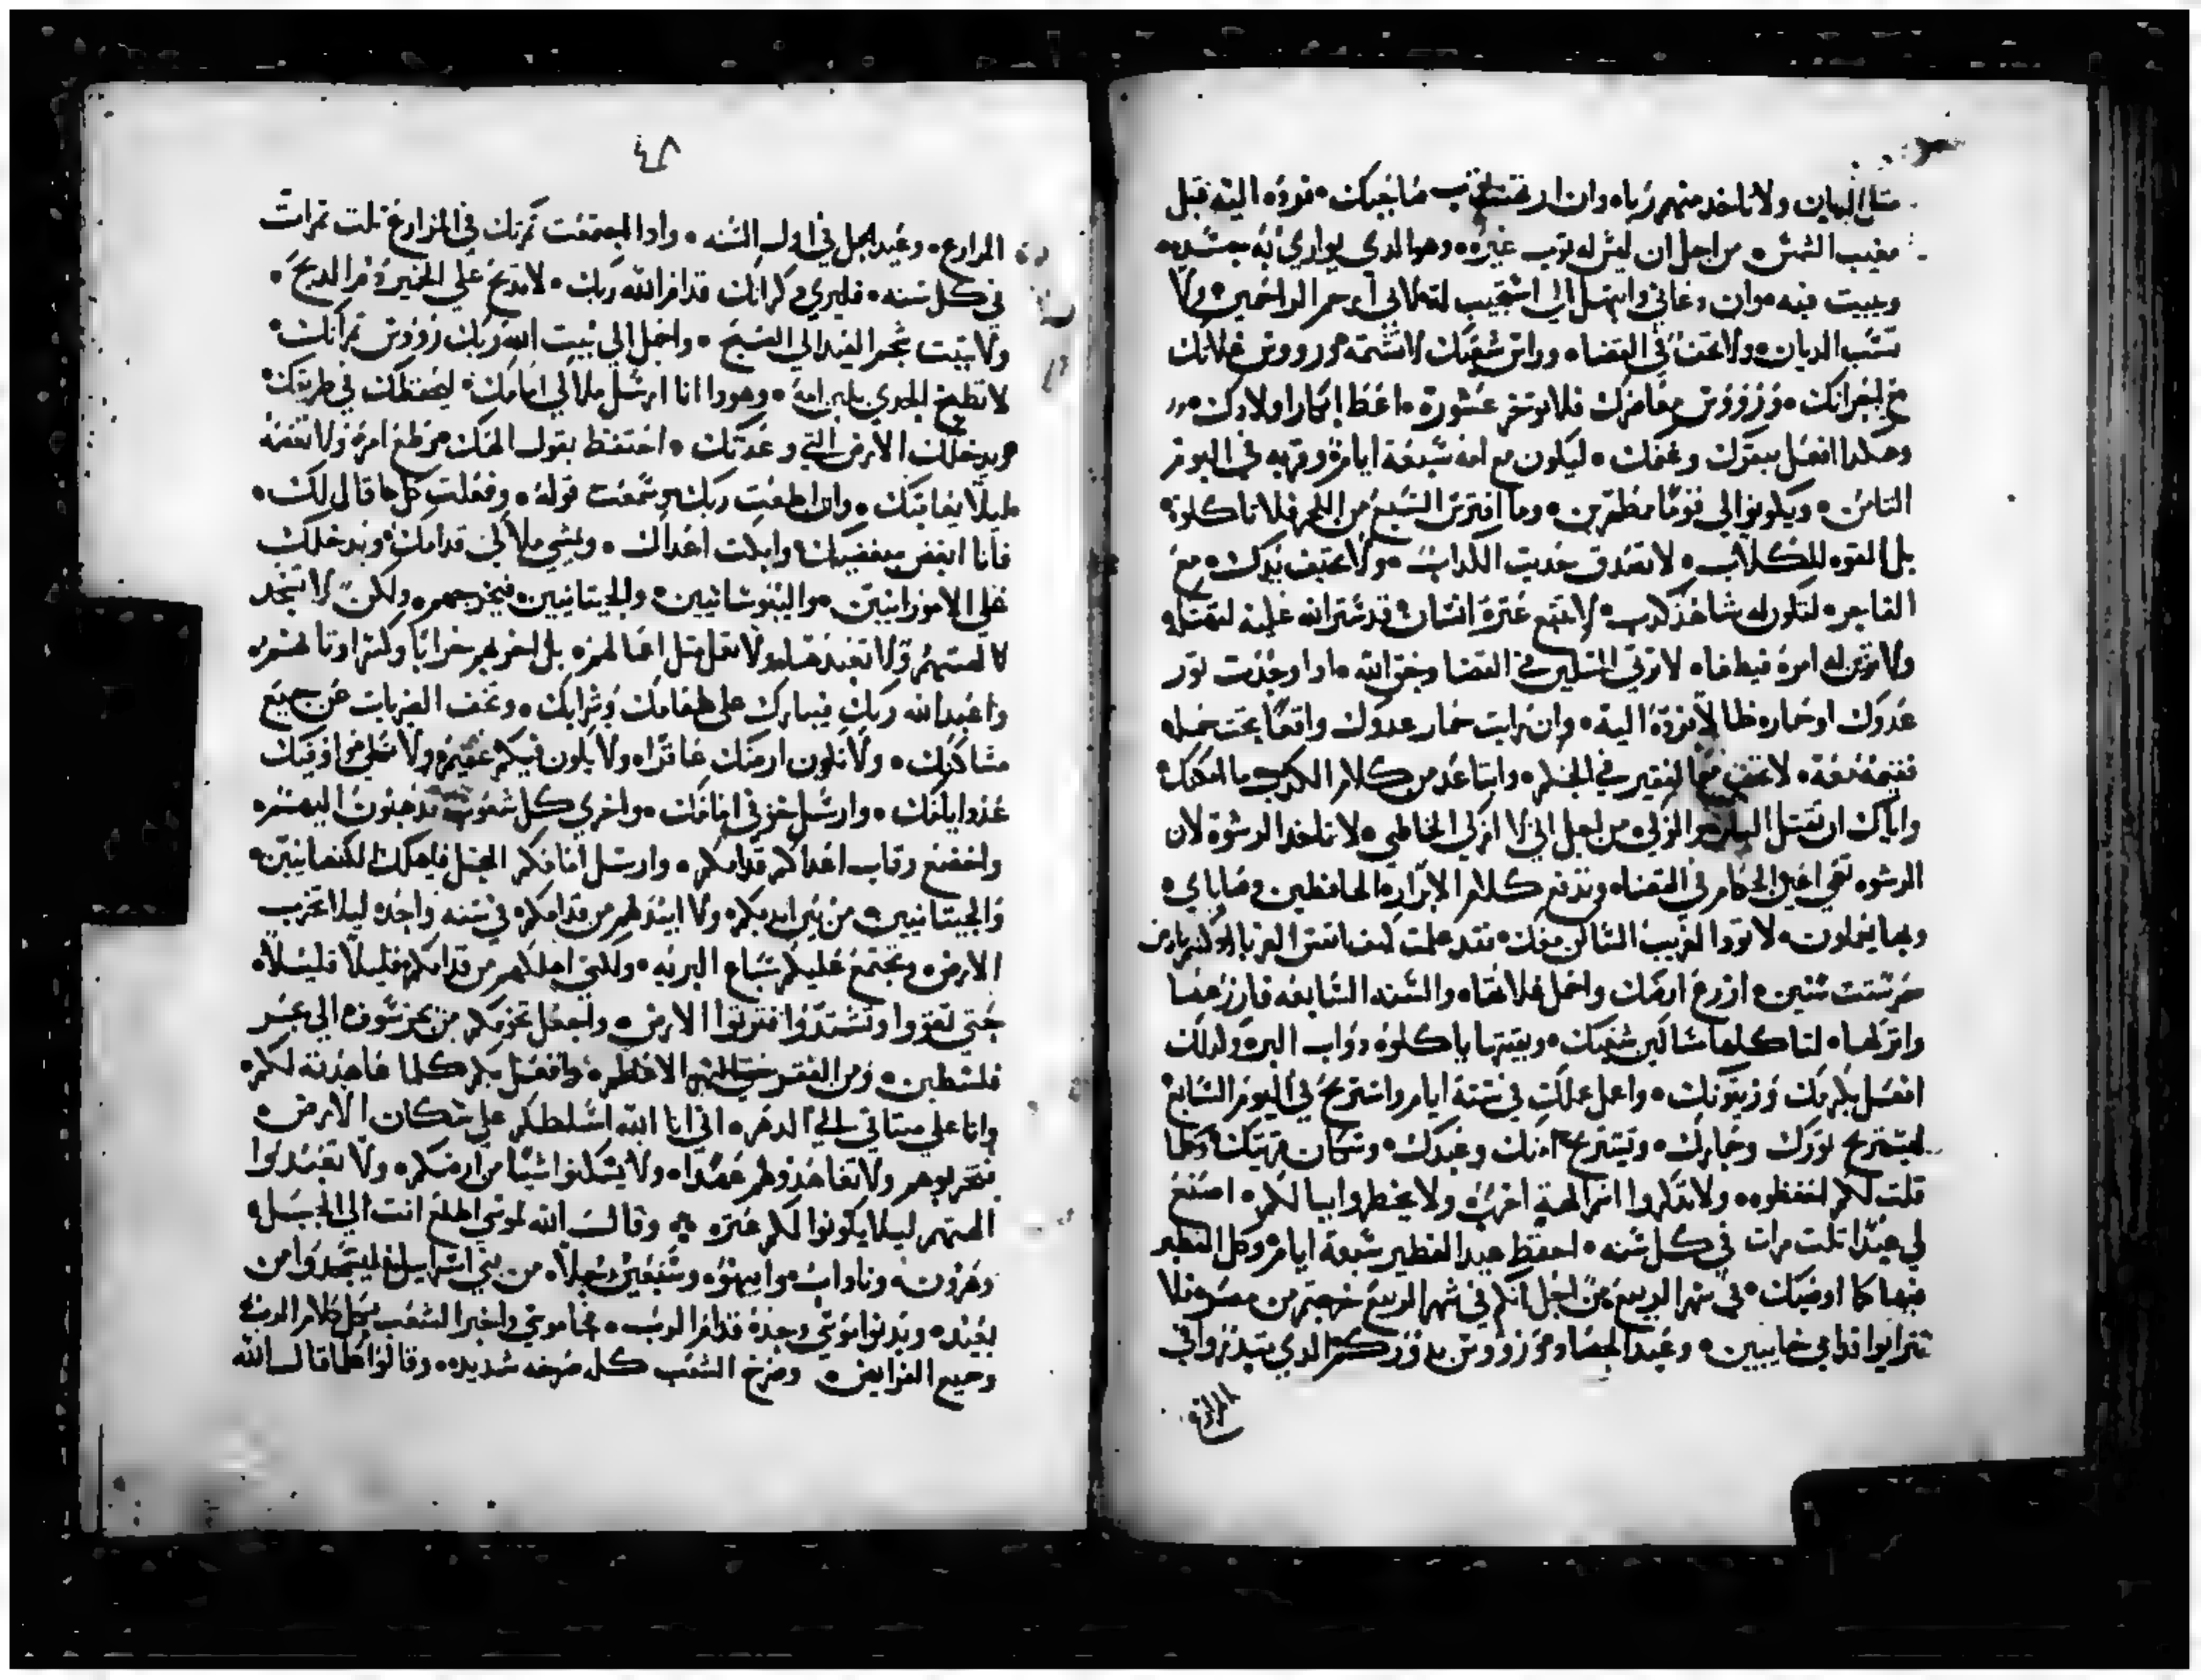 مثل البهاين ولا تاخد منهم ربا، وان ارتهنت توب صاحبك، فرده اليه قبل
مغيب الشمس، من اجل ان ليس له توب غيره، وهو الدي يواري به جسده
ويبيت فيه، وان دعاني وابتهل الي استجيب له، لاني ارحم الراحمين، ولا
تسب الديان، ولا تحف في القضا، وراس شعبك لا تشتمه، وروس غلاتك
مع ليغرانك، وروس معاصرك فلا توخر عشوره، اعط ابكار اولادك،
وهكدا افعل ببقرك وغنمك، ليكون مع امه سبعة ايام، وقربه في اليوم
التامن، ويكونوا لي قوما مطهرين، وما افترس السبع من اللحم فلا تاكلوة
بل القوه للكلاب، لا تصدق حديت الكداب، ولا تحيف يدك، مع
الفاجر، لتكون له شاهد كدب، لا تتبع عترة انسان قد ستر الله عليه لتهتكه
ولا تزين له امره فيطغا، لا ترتي المسكين في القضا وخف الله، ادا وجدت تور
عدوك او حماره ظالا فرده اليه، وان رايت حمار عدوك واقعا تحت حمله
فقيمه معه، لا تحف مع الفقير في الحكم، وابتاعد من كلام الكدب ما امكنك
واياك ان تقتل البار والزكي، من اجل اني لا ازكي الخاطي، لا تاخد الرشوة لان
الرشوه تعمي اعين الحكام في القضا، وتدفع كلام الابرار، الحافظين وصاياي
وبها يعملون، لا تودا الغريب الساكن معك، فقد علمت كيف انفس الغربا لانكم بارض
مصر سكنت سنين، ازرع ارضك واحمل غلاتها، والسنه السابعه فارزعها
واتركها، لتاكلها مساكين شعبك، وبقيتها ياكلوه دواب البر، وكدلك
افعل بكرمك وزيتونك، واعمل عملك في ستة ايام واستريح في اليوم السابع
ليستريح تورك وحمارك، ويستريح امتك وعبدك، وسكان قريتك، وكلما
قلت لكم احفظوه، ولا تدكروا اسم الهة اخرى، ولا يخطروا ببالكم، اصنع
لي عيدا تلت مرات في كل سنه، احفظ عيد الفطير سبعة ايام، وكل الفطير
فيها كما اوصيتك، في شهر الربيع، من اجل انكم في شهر الربيع خرجتم من مصر، فلا
تتراوا قدامي خايبين، وعيد الحصاد وروس بدوركم الدي تبدروا في
المزارع
٤٨
المزارع، وعيد اجل في اول السنه، وادا اجتمعت تمرتك في المزارع تلت تمرات
في كل سنه، فليري دكرانك قدام الله ربك، لا تدبح علي الخمير دم الدبح،
ولا تبيت شحم العيد الي الصبح، واحمل الي بيت الله ربك روس تمراتك،
لا تطبخ الجدي بلبن امه، وهودا انا ارسل ملاكي امامك، ليحفظك في طريقك
ويدخلك الارض التي وعدتك، احتفظ بقول الهك وطع امره ولا تعصه
ليلا يعاقبك، وان اطعت ربك وسمعت قوله، وفعلت كلما قال لك،
فانا ابغض مبغضيك وابكت اعداك، ويمشي ملاكي قدامك، ويدخلك
علي الاموزانيين، واليبوسانيين، والحيتانيين، فيخرجهم، ولكن لا تسجد
لالهتهم ولا تعبدها، ولا تعمل مثل اعمالهم، بل اخربهم خرابا وكسر اوتانهم
واعبد الله ربك فيبارك على طعامك وشرابك، وتخف الضربات عن جميع
مساكنك، ولا تكون ارضك عاقرا، ولا يكون فيكم عقيم، ولا تملي موافيك
عدوا يلقك، وارسل خوفي امامك، واخزي كل شعوب تدهبون اليهم،
واخضع رقاب اعداكم قدامكم، وارسل امامكم الجبل فاهلك الكنعانيين
والحيتانيين، من بين ايديكم، ولا ابيدهم من قدامكم في سنه واحده، ليلا تخرب
الارض، وتجتمع عليكم سباع البريه، ولكني اهلكهم من قدامكم قليلا قليلا،
حتي تقووا وتشتدوا فترتوا الارض، واجعل تخومكم من بحر سوف الي بحر
فلسطين، ومن القفر حتي النهر الاعظم، وافعل بكم كلما عاهدته لكم،
وانا علي ميتاقي الي الدهر، اني انا الله اسلطكم علي سكان الارض
فتخربوهم ولا تعاهدوهم عهدا، ولا يسكنوا شيا من ارضكم، ولا تعبدوا
الهتهم ليلا يكونوا لكم عتره، وقال الله لموسي اطلع انت الي الجبل،
وهرون، وناداب، وابيهو، وسبعين رجلا، من بني اسرايل فليسجدوا من
بعيد، ويدنوا موسي وحده قدام الرب، فجا موسي واخبر الشعب بكل كلام الرب
وجميع الفرايض، وصرخ الشعب كله صرخه شديده، وقالوا كلما قال الله